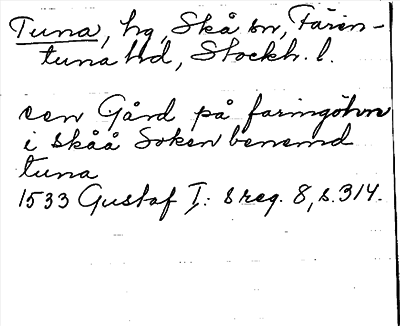 Tuna, hg, Skå sn, Fären-
tuna hd, Stockh. l.
een Gård på faringöhn
i skåå Soken benemd
tuna
1533 Gustaf I: s reg. 8, s. 314.